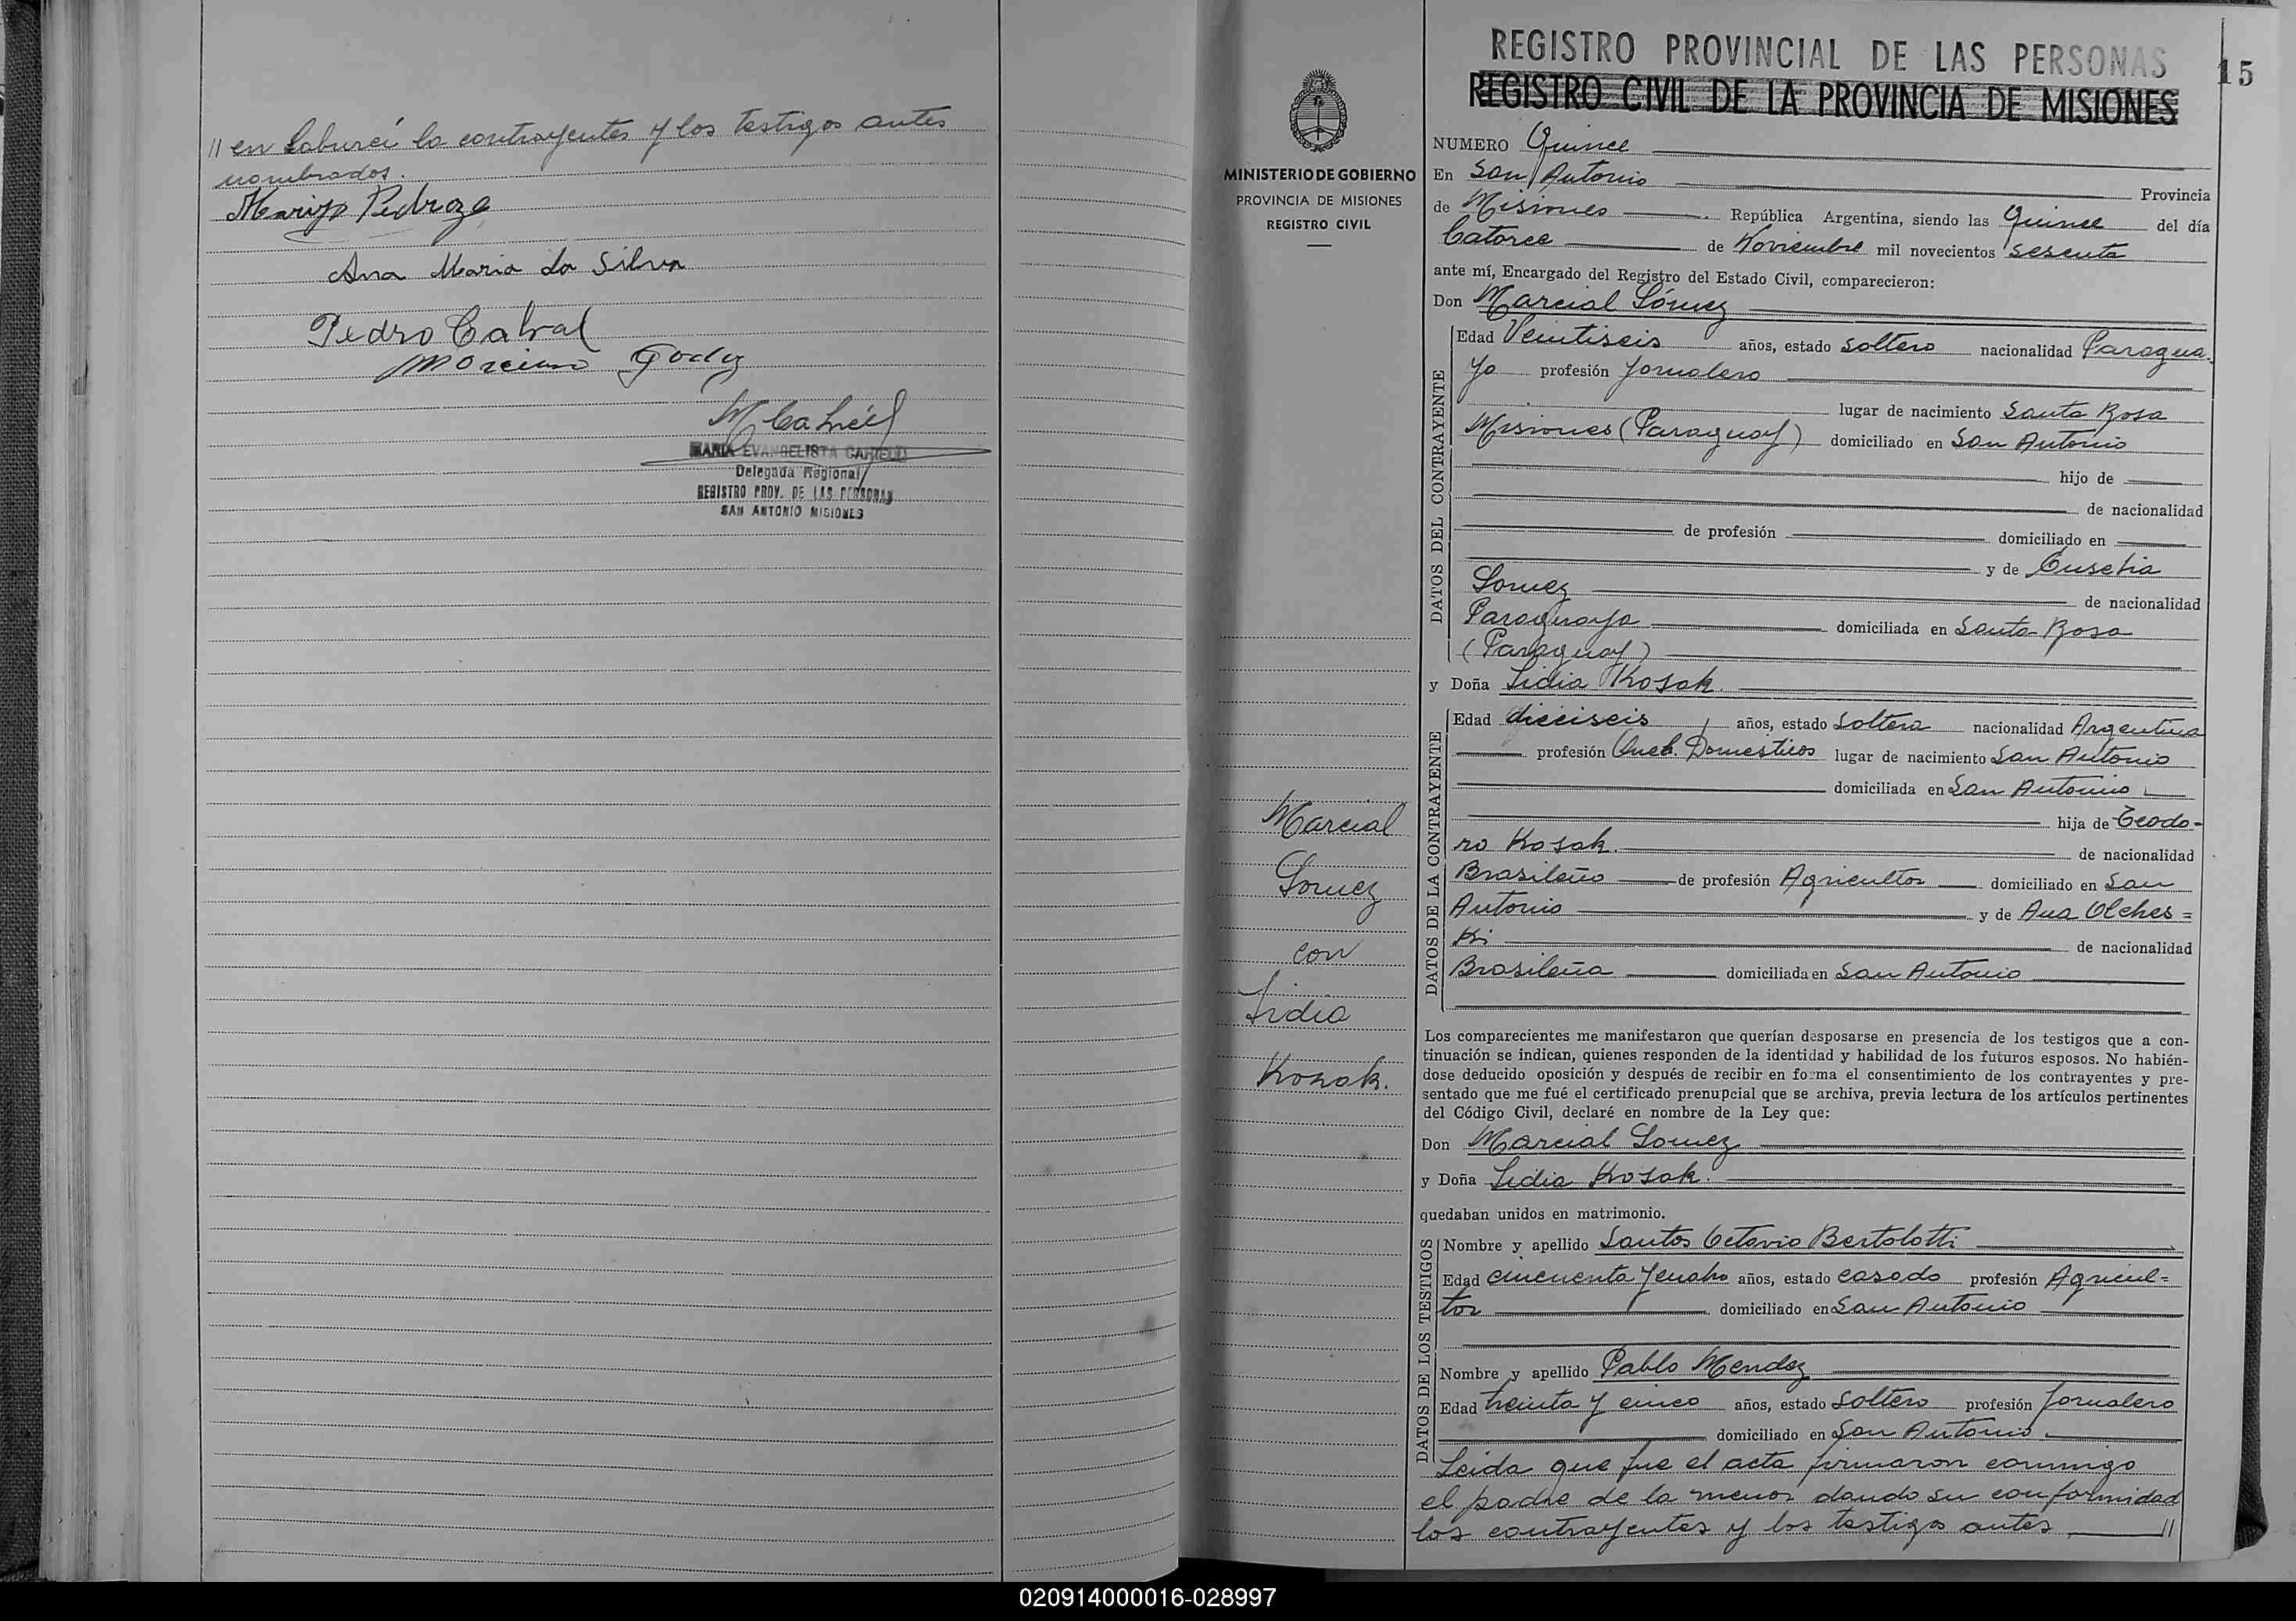 // en Laburei la contrayentes y los testigos antes
nombrados.
Pedroza
Ana Maria da Silva
Pedro Cabral
Godoy
MARIA EVANGELISTA
Delegada Regional
REGISTRO PROV. DE LAS PERSONAS
SAN ANTONIO MISIONES
MINISTERIO DE GOBIERNO
PROVINCIA DE MISIONES
REGISTRO CIVIL
Marcial
Gomez
con
Lidia
Kosak.
REGISTRO PROVINCIAL DE LAS PERSONAS
REGISTRO CIVIL DE LA PROVINCIA DE MISIONES
15
NUMERO Quince
En San Antonio Provincia
de Misiones República Argentina, siendo las Quince del día
Catorce de Noviembre mil novecientos sesenta
ante mí, Encargado del Registro del Estado Civil, comparecieron:
Don Marcial Gómez
DATOS DEL CONTRAYENTE
Edad Veintiseis años, estado soltero nacionalidad Paragua-
yo profesión Jornalero
lugar de nacimiento Santa Rosa
Misiones (Paraguay) domiciliado en San Antonio
hijo de
de nacionalidad
de profesión domiciliado en
y de Eusebia
Gomez de nacionalidad
Paraguaya domiciliada en Santa Rosa
(Paraguay)
y Doña Lidia Kosak.
DATOS DE LA CONTRAYENTE
Edad dieciseis años, estado Soltera nacionalidad Argentina
profesión Queh. Domesticos lugar de nacimiento San Antonio
domiciliada en San Antonio
hija de Teodo-
ro Kosak. de nacionalidad
Brasileño de profesión Agricultor domiciliado en San
Antonio y de Ana Olches=
ki de nacionalidad
Brasileña domiciliada en San Antonio
Los comparecientes me manifestaron que querían desposarse en presencia de los testigos que a con-
tinuación se indican, quienes responden de la identidad y habilidad de los futuros esposos. No habién-
dose deducido oposición y después de recibir en forma el consentimiento de los contrayentes y pre-
sentado que me fué el certificado prenupcial que se archiva, previa lectura de los artículos pertinentes
del Código Civil, declaré en nombre de la Ley que:
Don Marcial Gomez
y Doña Lidia Kosak.
quedaban unidos en matrimonio.
DATOS DE LOS TESTIGOS
Nombre y apellido Santos Octavio Bertolotti
Edad cincuenta y ocho años, estado casado profesión Agricul=
tor domiciliado en San Antonio
Nombre y apellido Pablo Mendez
Edad treinta y cinco años, estado Soltero profesión Jornalero
domiciliado en San Antonio.
Leida que fue el acta firmaron conmigo
el padre de la menor dando su conformidad
los contrayentes y los testigos antes //
020914000016-028997